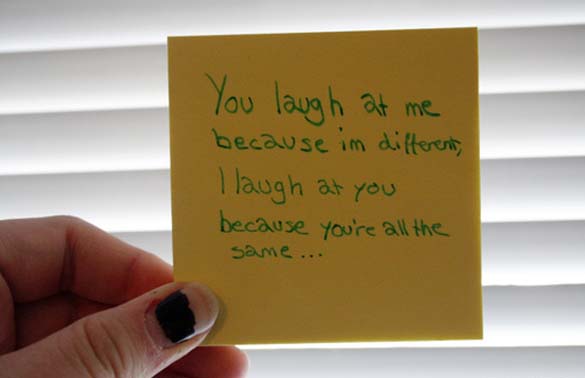 You laugh at me
because im different,
I laugh at you
because you're all the
same...